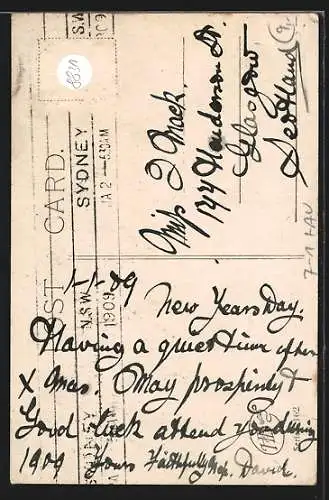 POST CARD.
SYDNEY
JA 2 - 530AM
N.S.W
1909
SYDNEY
Miss J Mack.
144 Henderson St.
Glasgow
Scotland
1-1-09
New Years Day.
Having a quiet time after
X Mas. May prosperity &
Good luck attend you during
1909 Yours Faithfully David.